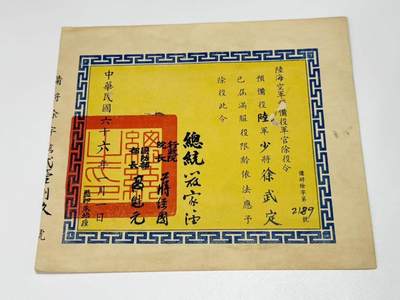 陸海空軍預備役軍官除役令
預備役陸軍少將徐武定
已屆滿服役限齡依法應予
除役此令
總統嚴家淦
行政院
院長 蔣經國
國防部
部長 高魁元
中華民國六十六年一月一日
備將除字第
2189
號